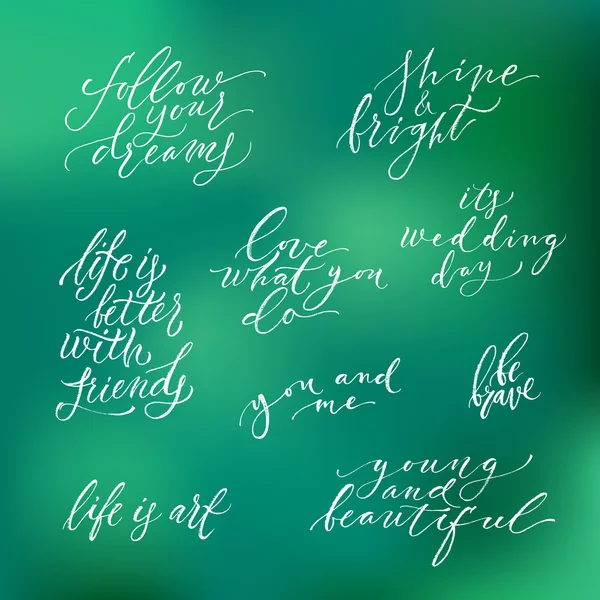 follow
your
dreams
shine
&
bright
it's
wedding
day
life is
better
with
friends
love
what you
do
you and
me
be
brave
life is art
young
and
beautiful